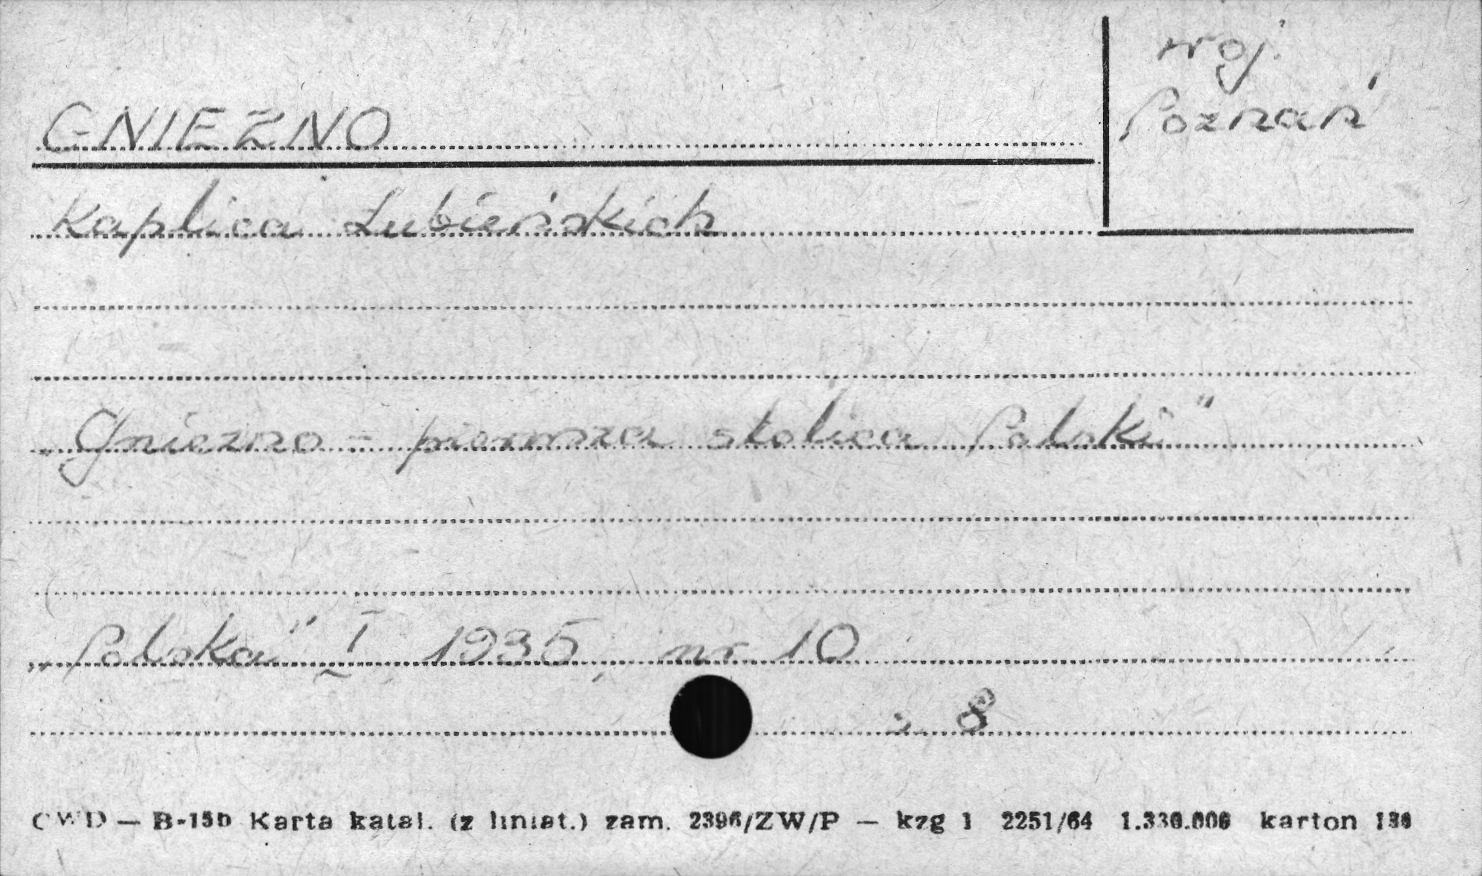 woj.
Poznań
GNIEZNO
Kaplica Łubieńskich
„Gniezno - pierwsza stolica Polski"
„Polska" I, 1935, nr. 10
s. 8
CWD — B-15b Karta katal. (z liniat.) zam. 2396/ZW/P — kzg 1 2251/64 1.330.000 karton